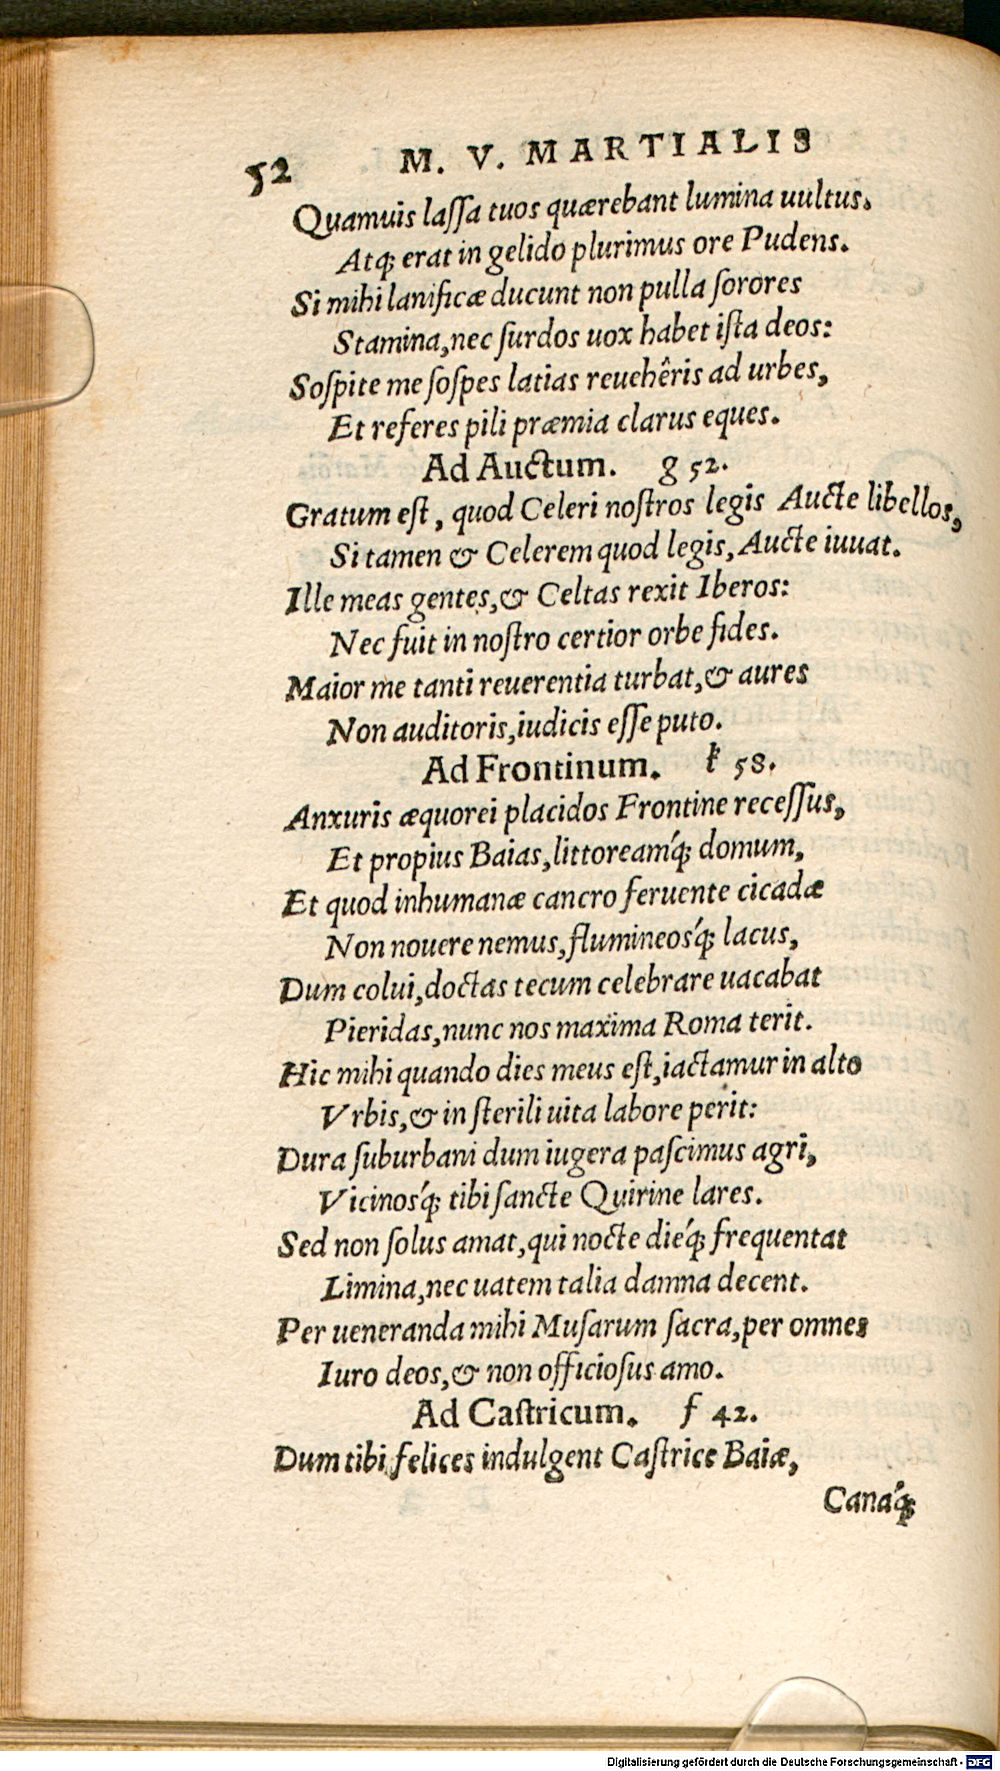 52 M. V. MARTIALIS
Quamuis laſſa tuos quærebant lumina uultus.
Atq; erat in gelido plurimus ore Pudens.
Si mihi lanificæ ducunt non pulla ſorores
Stamina, nec ſurdos uox habet iſta deos:
Soſpite me ſoſpes latias reuehêris ad urbes,
Et referes pili præmia clarus eques.
Ad Auctum. g 52.
Gratum eſt, quod Celeri noſtros legis Aucte libellos,
Si tamen & Celerem quod legis, Aucte iuuat.
Ille meas gentes, & Celtas rexit Iberos:
Nec fuit in noſtro certior orbe fides.
Maior me tanti reuerentia turbat, & aures
Non auditoris, iudicis eſſe puto.
Ad Frontinum. k 58.
Anxuris æquorei placidos Frontine receſſus,
Et propius Baias, littoreamq́; domum,
Et quod inhumanæ cancro feruente cicadæ
Non nouere nemus, flumineosq́; lacus,
Dum colui, doctas tecum celebrare uacabat
Pieridas, nunc nos maxima Roma terit.
Hic mihi quando dies meus eſt, iactamur in alto
Vrbis, & in ſterili uita labore perit:
Dura ſuburbani dum iugera paſcimus agri,
Vicinosq́; tibi ſancte Quirine lares.
Sed non ſolus amat, qui nocte dieq́; frequentat
Limina, nec uatem talia damna decent.
Per ueneranda mihi Muſarum ſacra, per omnes
Iuro deos, & non officioſus amo.
Ad Caſtricum. f 42.
Dum tibi felices indulgent Caſtrice Baiæ,
Canaq́;
Digitalisierung gefördert durch die Deutsche Forschungsgemeinschaft - DFG